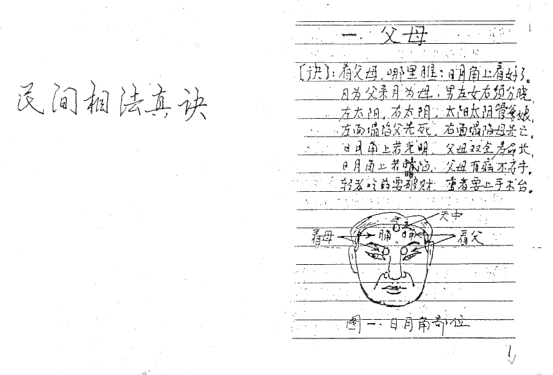 民间相法真诀
一、父母
[诀]:看父母,哪里瞧:日月角上看好了。
日为父来月为母;男左女右须分晓,
左太阳,右太阴;太阳太阴管爹娘,
左面塌陷父先死,右面塌陷母先亡。
日月角上若光明,父母双全
日月角上若暗陷,父母有病不
轻者吃药要破财,重者要上手术台。
天中
看母
看父
图一:日月角部位
1